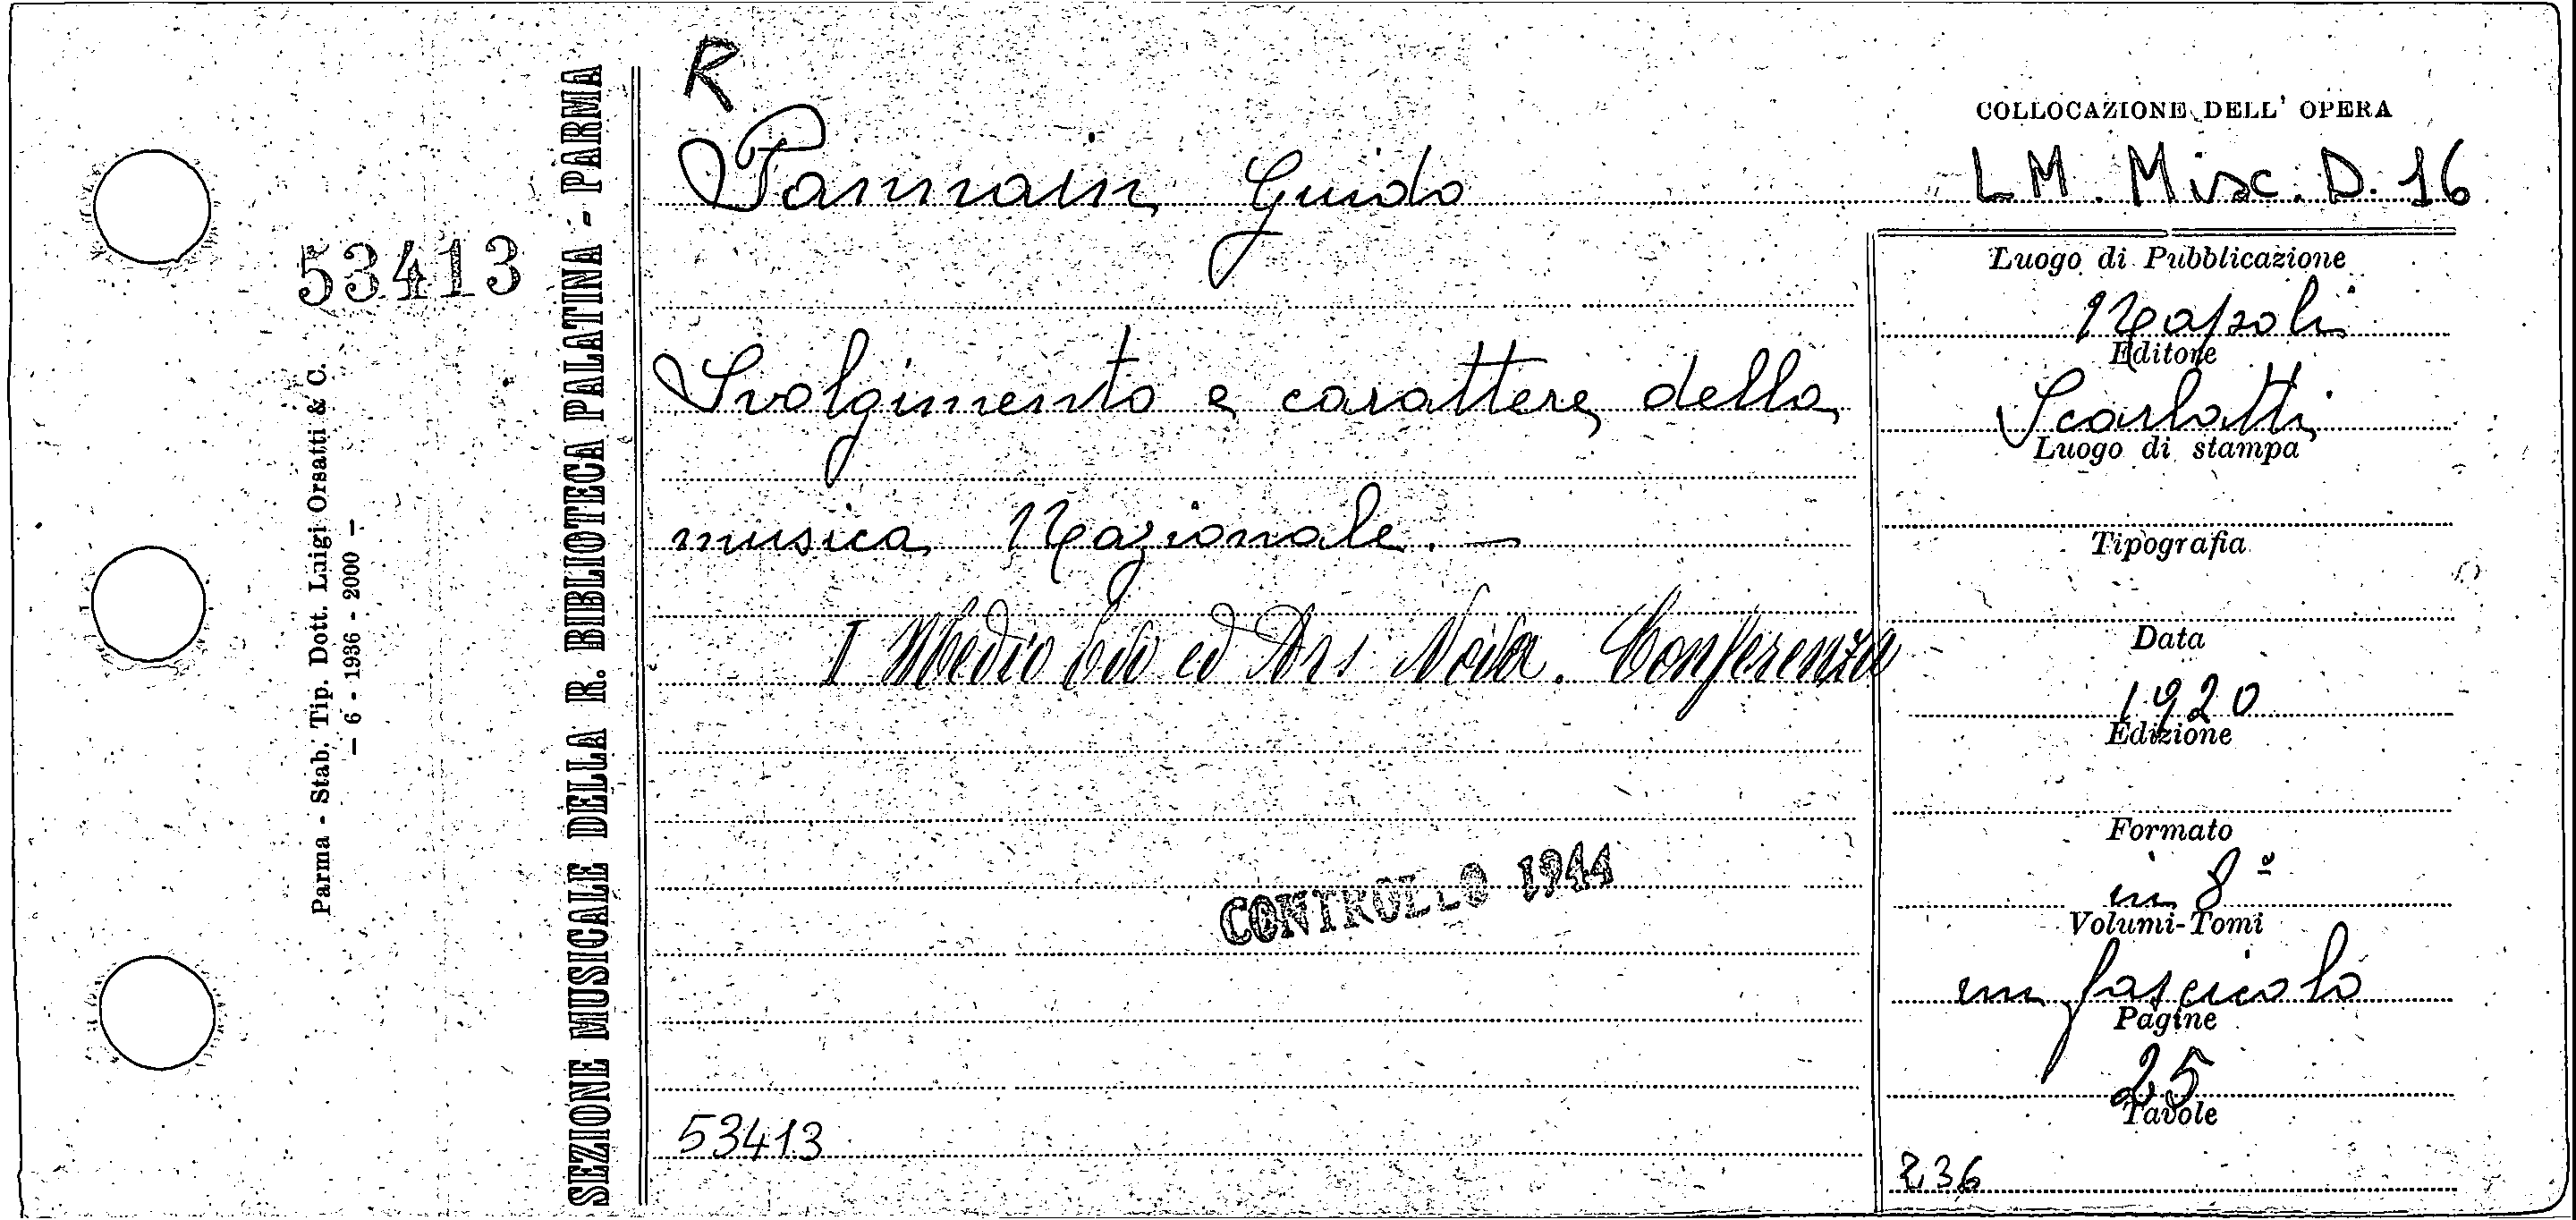 53413
Parma - Stab. Tip. Dott. Luigi Orsatti & C.
— 6 - 1936 - 2000 —
SEZIONE MUSICALE DELLA R. BIBLIOTECA PALATINA - PARMA
R
Pannain Guido
Svolgimento e carattere della
musica Nazionale. —
I Medio Evo ed Ars Nova. Conferenza
CONTROLLO 1944
53413
COLLOCAZIONE DELL' OPERA
LM. Misc. D. 16
Luogo di Pubblicazione
Napoli
Editore
Scarlatti
Luogo di stampa
Tipografia
Data
1920
Edizione
Formato
in 8º
Volumi-Tomi
un fascicolo
Pagine
25
Tavole
236